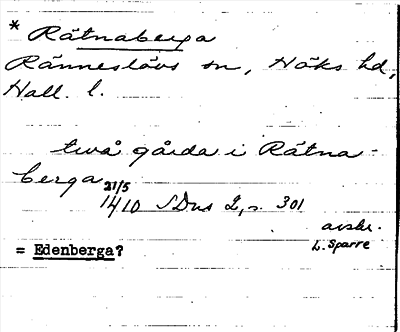 * Rätnaberga
Ränneslövs sn, Höks hd,
Hall. l.
twå gårda i Rätna-
berga
21/5
1410 SDns 2, s. 301
avskr.
L. Sparre
= Edenberga?